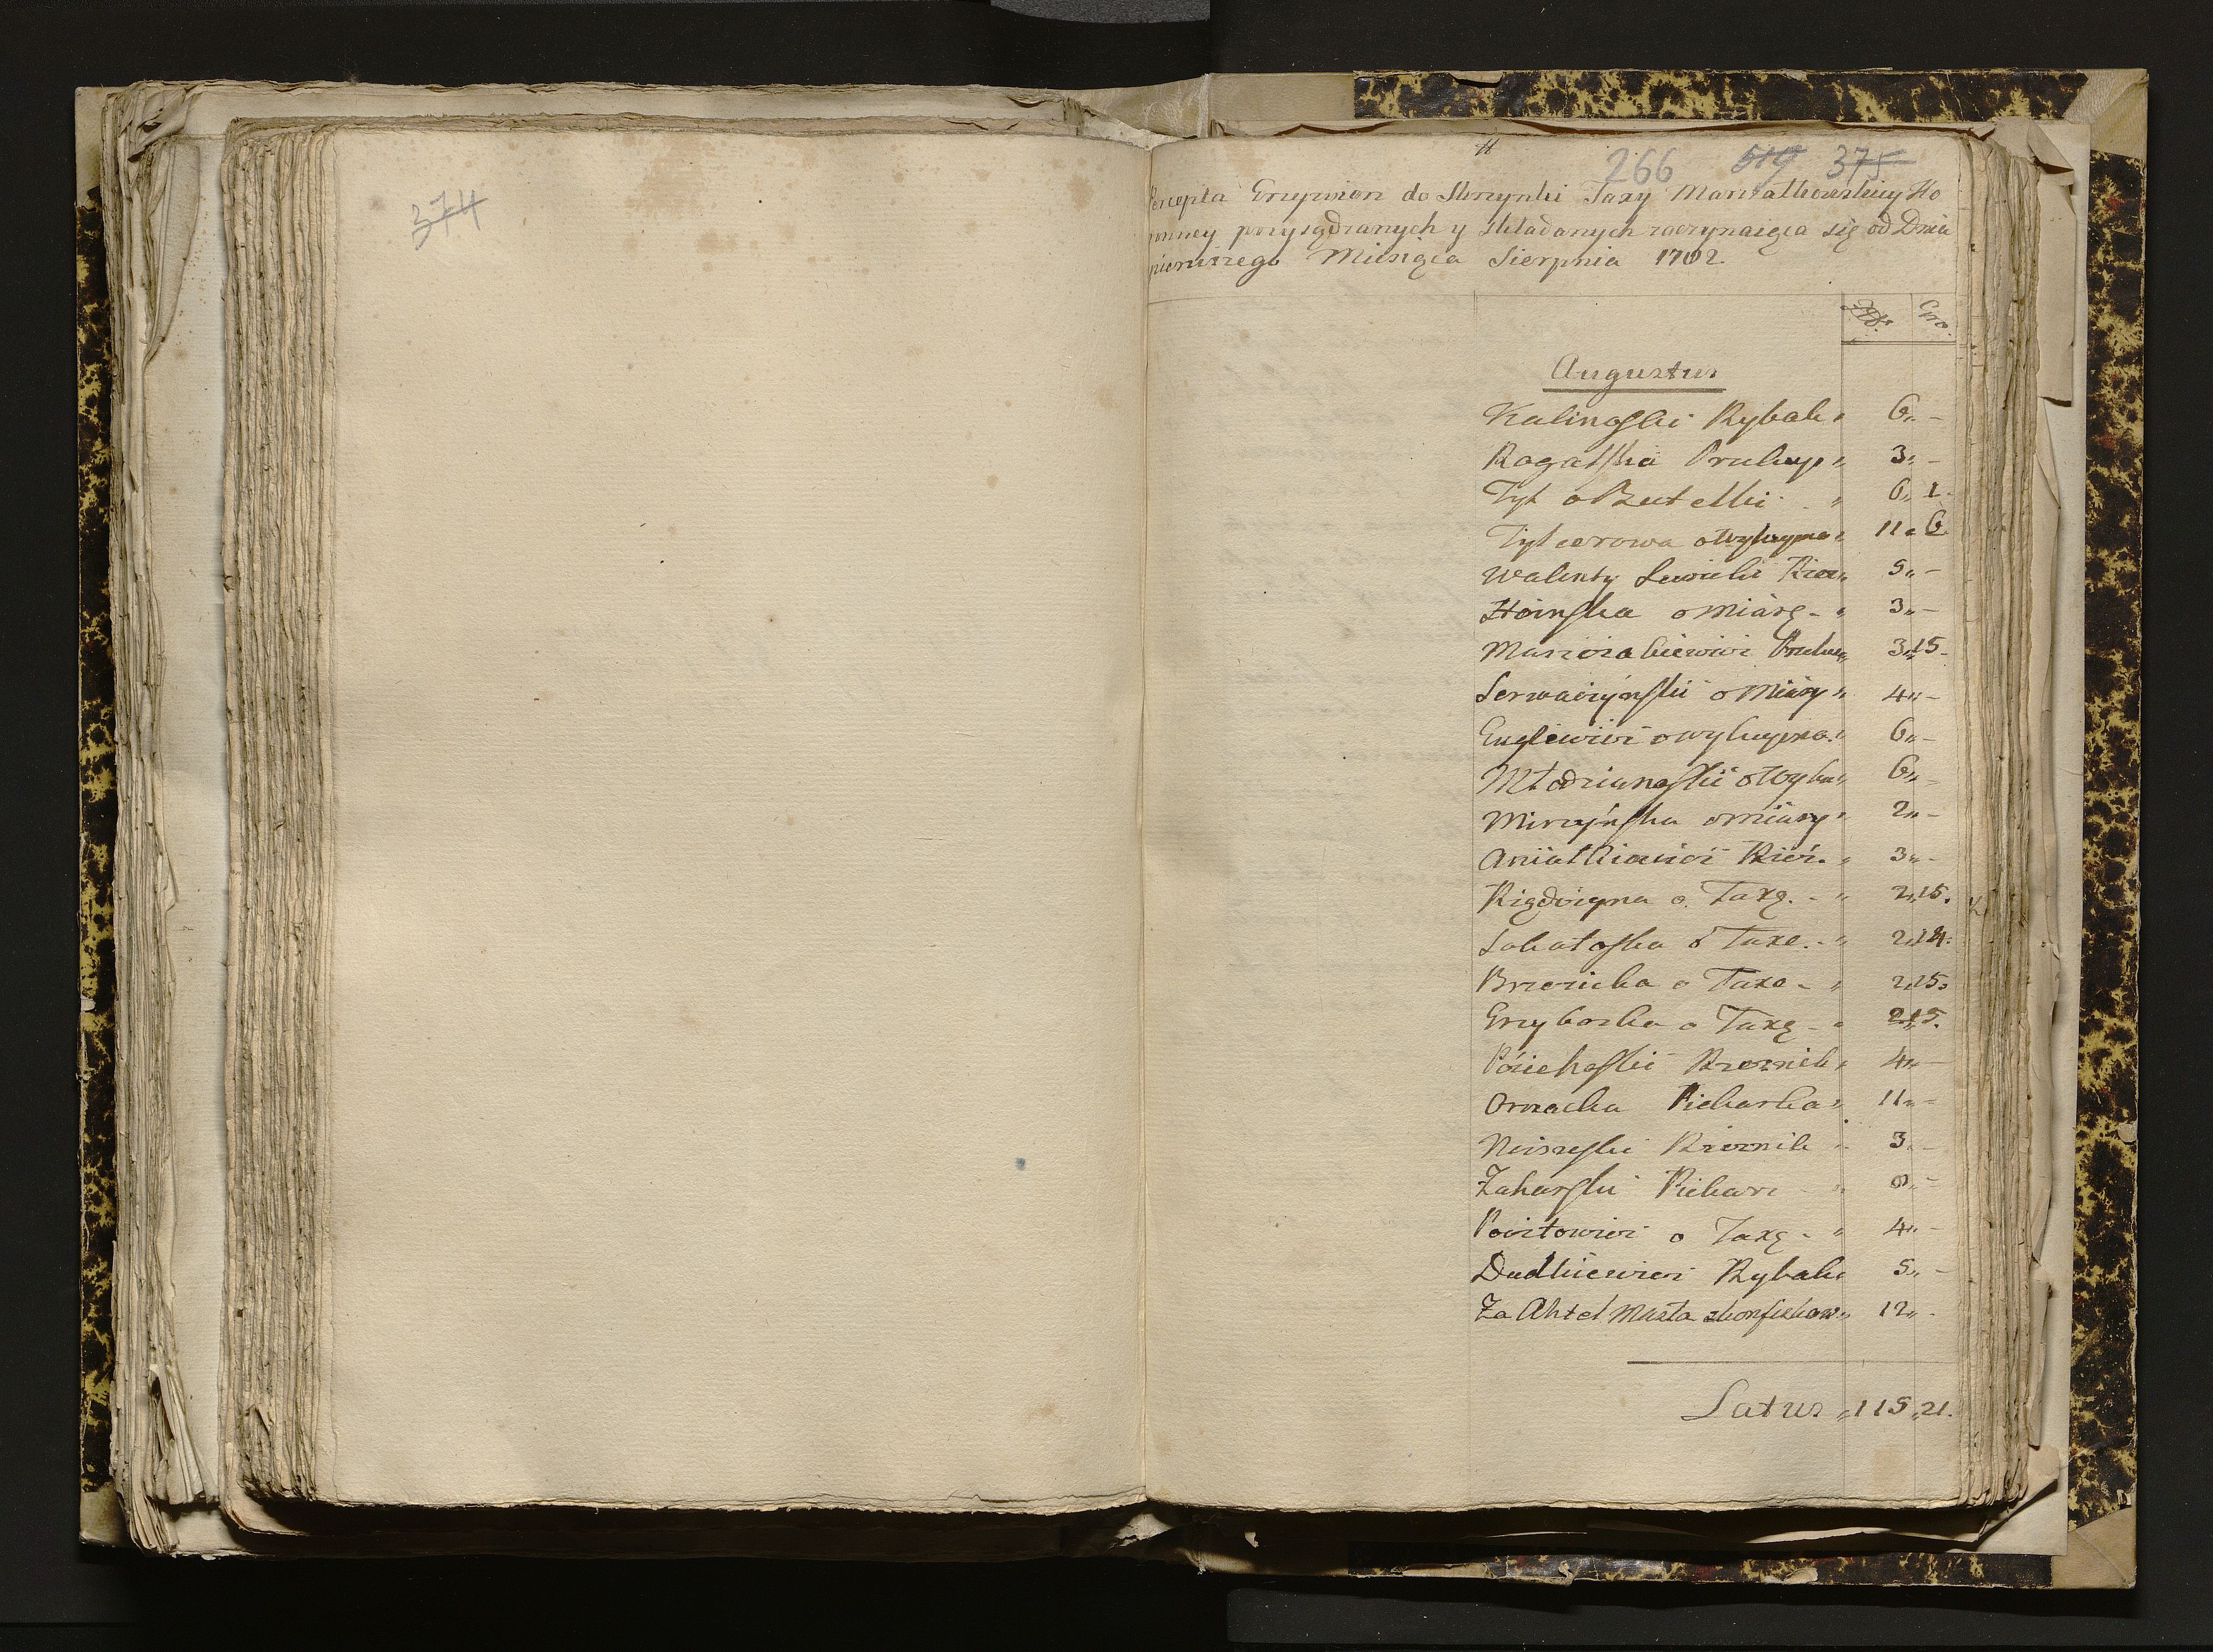 374
266 519 375
Percepta Grzywien do Skrzynki Taxy Marszałkowskiey Ko
ronney przysądzanych y składanych zaczynaiąca się od Dnia
pierwszego Miesiąca Sierpnia 1782.
Zło. Gro.
Augustus
Kalinoski Rybak „ 6 „ -
Rogalska Przekup „ 3 „ -
Tyl o Butelki „ 6 „ 1.
Tylcerowa o Wykupno „ 11 „ 6
Walenty Lewicki Rzez „ 5 „ -
Hoinska o Miarę - „ 3 „ -
Marszałkiewicz Przekup „ 3 „ 15 -
Serwaczynski o Miary „ 4 „ -
Englewicz o wykupno „ 6 „ -
Młodzianoski o Wyku „ 6 „ -
Mirzynska o miary „ 2 „ -
Aniałkiewicz Rzez. „ 3 „ -
Rządzizna o Taxę. - „ 2 „ 15.
Sakatoska o Taxe. - „ 2 „ 14.
Brzozicka o Taxe - „ 2 „ 15.
Grzyboska o Taxę - „ 2 „ 15.
Pściechoski Rzeznik „ 4 „ -
Orzacka Piekarka „ 11 „ -
Niszeski Rzeznik „ 3 „ -
Zaharski Piekarz „ 8 „ -
Powitowicz o Taxę - „ 4 „ -
Dudkiewicz Rybak „ 5 „ -
Za Ahtel Masła zkonfiskow „ 12 „ -
Latus „ 115 „ 21.